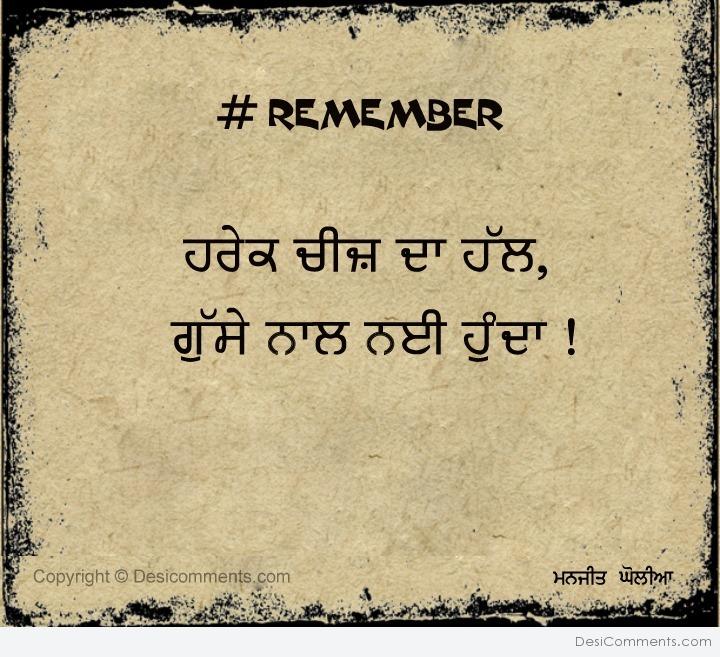 # REMEMBER
ਹਰੇਕ ਚੀਜ਼ ਦਾ ਹੱਲ,
ਗੁੱਸੇ ਨਾਲ ਨਈ ਹੁੰਦਾ !
Copyright © Desicomments.com
ਮਨਜੀਤ ਘੋਲੀਆ
DesiComments.com